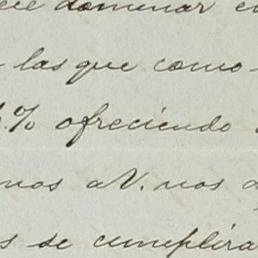 dominar
las que como
% ofreciendo
nos a V. nos
se cumplira